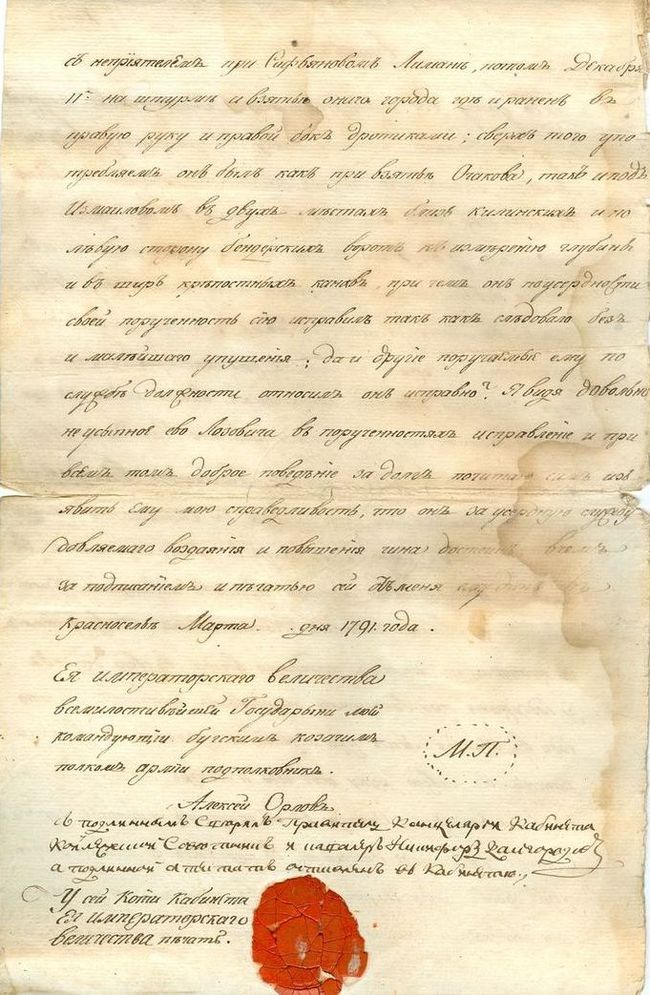 съ непрiятелемъ при Лиманѣ, потомъ Декабря
11го на штурмѣ и взятьѣ онаго города гдѣ и раненъ въ
правую руку и правой бокъ дротиками; сверхъ того упо
требляемъ онъ былъ какъ при взятьѣ Очакова, такъ и подъ
Измаиловомъ въ двухъ мѣстахъ близь килинскихъ и по
лѣвую сторону бендерскихъ воротъ къ измѣренiю глубины
и въ ширь крѣпостныхъ канавъ, при чемъ онъ по усердности
своей порученность сiю исправилъ такъ какъ слѣдовало безъ
и малѣйшаго упущенiя; да и другiе поручаемые ему по
службѣ должности относилъ онъ исправно. Я видя довольно
неусыпное ево Лозовича въ порученностяхъ исправленiе и при
всемъ томъ доброе поведѣнiе за долгъ почитаю симъ изъ
явить ему мою справедливость, что онъ за усердную службу
довляемаго воздаянiя и повышенiя чина достоинъ
за подписанiемъ и печатью сей отъ меня
Марта дня 1791. года.
Ея императорскаго величества
всемилостивѣйшей Государыни моей
командующiй бугскимъ козачимъ
полкомъ армiи подполковникъ.
Алексей Орловъ
М.П.
съ подлиннымъ Канцелярiи Кабинета
а подлинной аттестатъ оставленъ въ Кабинетѣ
У сей Копiи Кабинета
Ея императорскаго
величества печать.